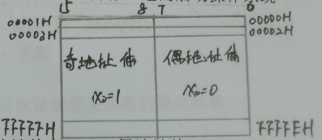 15 8 7 0
00001H 00000H
00003H 00002H
奇地址体 偶地址体
A₀=1 A₀=0
FFFFFH FFFFEH